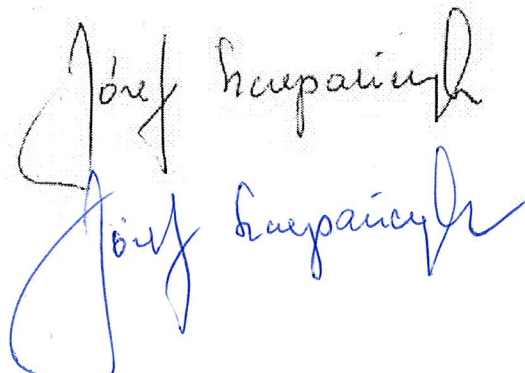 Józef Szczepańczyk
Józef Szczepańczyk